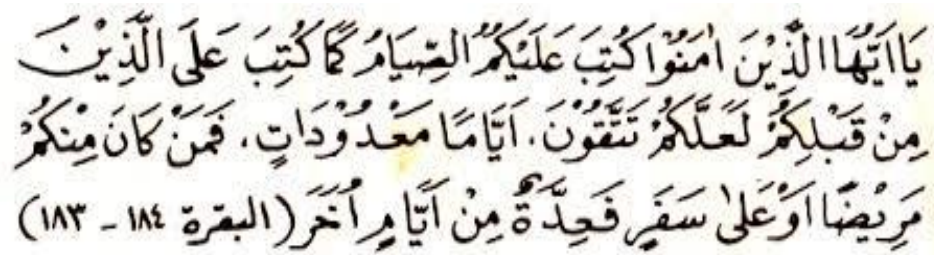 يَااَيُّهَا الَّذِيْنَ اٰمَنُوْا كُتِبَ عَلَيْكُمُ الصِّيَامُ كَمَا كُتِبَ عَلَى الَّذِيْنَ
مِنْ قَبْلِكُمْ لَعَلَّكُمْ تَتَّقُوْنَ. اَيَّامًا مَعْدُوْدَاتٍ. فَمَنْ كَانَ مِنْكُمْ
مَرِيْضًا اَوْ عَلٰى سَفَرٍ فَعِدَّةٌ مِنْ اَيَّامٍ اُخَرَ (البقرة ١٨٤ - ١٨٣)